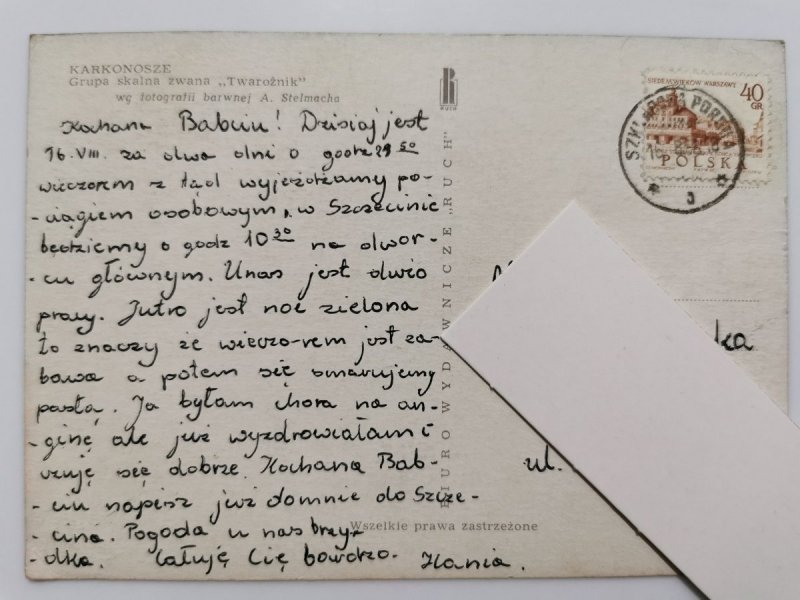 KARKONOSZE
Grupa skalna zwana „Twarożnik”
wg fotografii barwnej A. Stelmacha
Kochana Babciu! Dzisiaj jest
16.VIII. za dwa dni o godz 21 50
wieczorem z tąd wyjeżdżamy po-
- ciągiem osobowym, w Szczecinie
będziemy o godz 10 30 na dwor-
- cu głównym. Unas jest dwio
pracy. Jutro jest noc zielona
to znaczy że wieczo-rem jest za-
bawa a potem się smarujemy
pastą. Ja byłam chora na an-
- ginę ale już wyzdrowiałam i
czuję się dobrze. Kochana Bab-
- ciu napisz już domnie do Szcze-
- cina. Pogoda u nas brzy-
- dka. Całuję Cię bardzo. Hania.
BIURO WYDAWNICZE „RUCH”
RUCH
Wszelkie prawa zastrzeżone
SIEDEM WIEKÓW WARSZAWY
40
GR
POLSKA
SZKLARSKA PORĘBA
ka
ul.